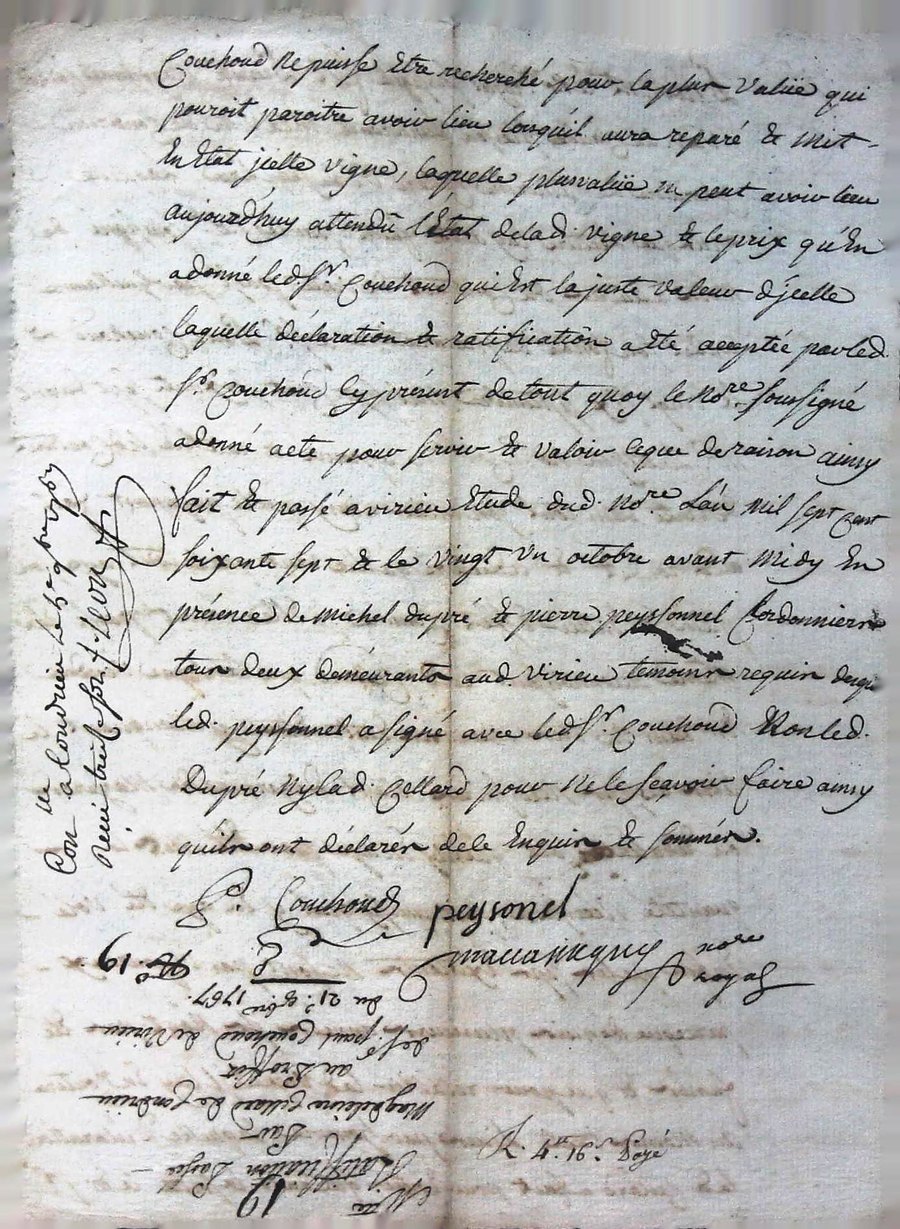 Couchoud ne puisse Etre recherché pour la plus valüe qui
pouroit paroitre avoir lieu lorsquil aura reparé & met
En Etat jcelle vigne, laquelle plusvalüe ne peut avoir lieu
aujourdhuy attendû l'Etat delad. vigne & leprix qu'En
adonné led. Sr. Couchoud qui Est lajuste valeur djcelle
laquelle déclaration & ratification a Eté acceptée parled.
Sr. Couchoud Cy présent detout quoy le Nore. soussigné
adonné acte pour servir & valoir ceque deraison ainsy
fait & passé avirieu Etude dud. Nore. L'an Mil sept Cent
soixante sept & le vingt un octobre avant Midy En
présence de Michel dupré & pierre peyssonnel Cordonniers
tous deux deméurants aud. virieu témoins requis
led. peyssonnel a signé avec led. Sr. Couchoud & Non led.
Dupré Ny lad. Cellard pour Ne le sçavoir faire ainsy
quils ont déclarés de ce Enquis & sommés.
Couchoud peysonel
nore
royal
Con a Condrieu le
1767
Reçu treize sols
No. 19
19
Ratification passée
Par
Magdeleine Cellard de Condrieu
au Proffit
de Sr. paul Couchoud de Virieu
du 21e. 8bre 1767.